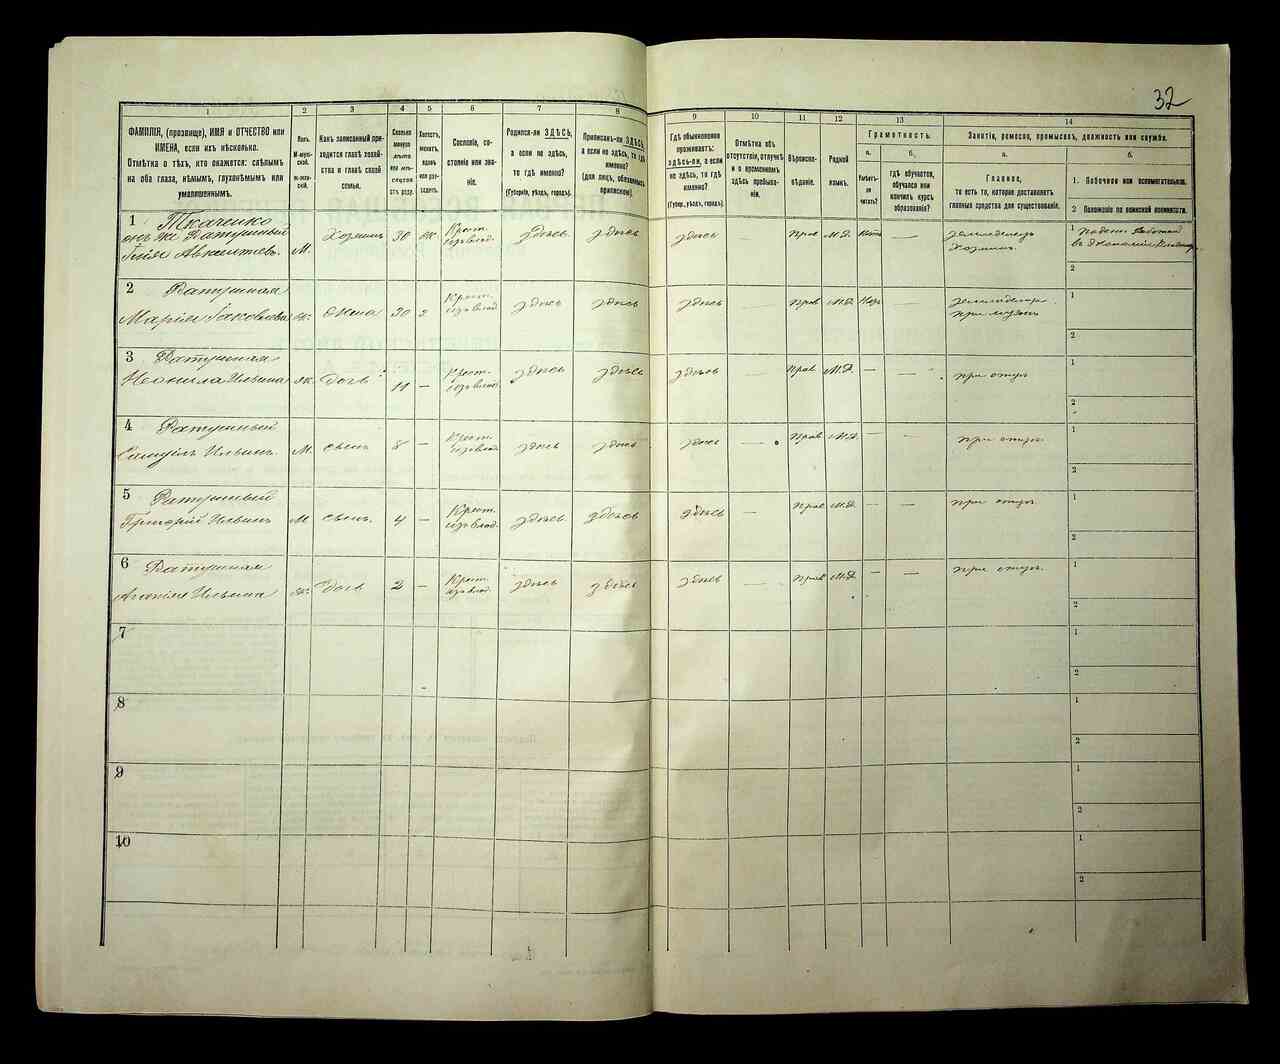 32
1
2
3
4
5
6
7
8
9
10
11
12
13
14
ФАМИЛІЯ, (прозвище), ИМЯ и ОТЧЕСТВО или
ИМЕНА, если ихъ нѣсколько.
Отмѣтка о тѣхъ, кто окажется: слѣпымъ
на оба глаза, нѣмымъ, глухонѣмымъ или
умалишеннымъ.
Полъ.
М-муж-
ской.
Ж-жен-
скій.
Какъ записанный при-
ходится главѣ хозяй-
ства и главѣ своей
семьи.
Сколько
минуло
лѣтъ
или мѣ-
сяцевъ
отъ роду.
Холостъ,
женатъ,
вдовъ
или раз-
веденъ.
Сословіе, со-
стояніе или зва-
ніе.
Родился-ли ЗДѢСЬ,
а если не здѣсь,
то гдѣ именно?
(Губернія, уѣздъ, городъ).
Приписанъ-ли ЗДѢСЬ,
а если не здѣсь, то гдѣ
именно?
(для лицъ, обязанныхъ
припискою).
Гдѣ обыкновенно
проживаетъ:
здѣсь-ли, а если
не здѣсь, то гдѣ
именно?
(Губер., уѣздъ, городъ).
Отмѣтка объ
отсутствіи, отлучкѣ
и о временномъ
здѣсь пребыва-
ніи.
Вѣроиспо-
вѣданіе.
Родной
языкъ.
Грамотность.
а.
б.
Умѣетъ-
ли
читать?
гдѣ обучается,
обучался или
кончилъ курсъ
образованія?
Занятіе, ремесло, промыселъ, должность или служба.
а.
б.
Главное,
то есть то, которое доставляетъ
главныя средства для существованія.
1. Побочное или вспомогательное.
2 Положеніе по воинской повинности.
1 Ткаченко
онъ же Ратушный
Илія М. Хозяинъ 30 ж. Крест. изъ влад. здѣсь здѣсь здѣсь — Прав М.Р. земледѣлецъ
хозяинъ.
1
2
2 Ратушная
Марія Яковлева ж. жена 30 Крест. изъ влад. здѣсь здѣсь здѣсь — Прав М.Р.
при мужѣ
1
2
3 Ратушная
Неонила Ильина ж. дочь 11 — Крест. изъ влад. здѣсь здѣсь здѣсь — Прав М.Р. — — при отцѣ
1
2
4 Ратушный
Самуилъ Ильинъ. М. сынъ 8 — Крест. изъ влад. здѣсь здѣсь здѣсь — Прав М.Р. — — при отцѣ
1
2
5 Ратушный
Григорій Ильинъ М сынъ. 4 — Крест. изъ влад. здѣсь здѣсь здѣсь — Прав М.Р. — — при отцѣ.
1
2
6 Ратушная
Агапія Ильина ж. дочь 2 — Крест. изъ влад. здѣсь здѣсь здѣсь — Прав М.Р. — — при отцѣ.
1
2
7
1
2
8
1
2
9
1
2
10
1
2